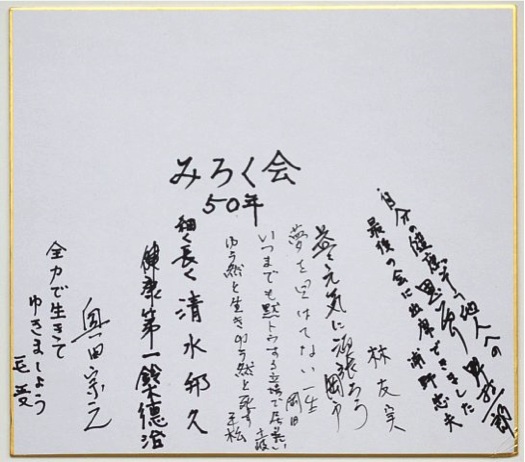 みろく会
50年
自分の健康そして他人への
思いやり
最後の会に出席できました
浦野忠夫
林友実
益々元気に頑張ろう
夢を忘れてない一生
岡田
いつまでも黙トウする立場で居たい
ゆう然と生きゆう然と死す
平松
細く長く 清水邦久
健康第一 鈴木徳治
奥田宗
全力で生きて
ゆきましょう